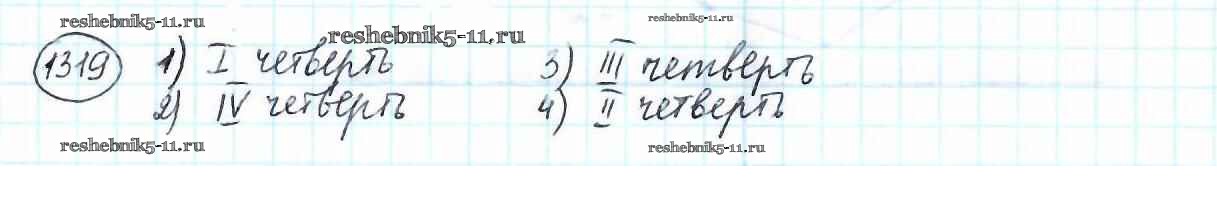 reshebnik5-11.ru reshebnik5-11.ru
reshebnik5-11.ru
1319 1) I четверть 3) III четверть
2) IV четверть 4) II четверть
reshebnik5-11.ru reshebnik5-11.ru